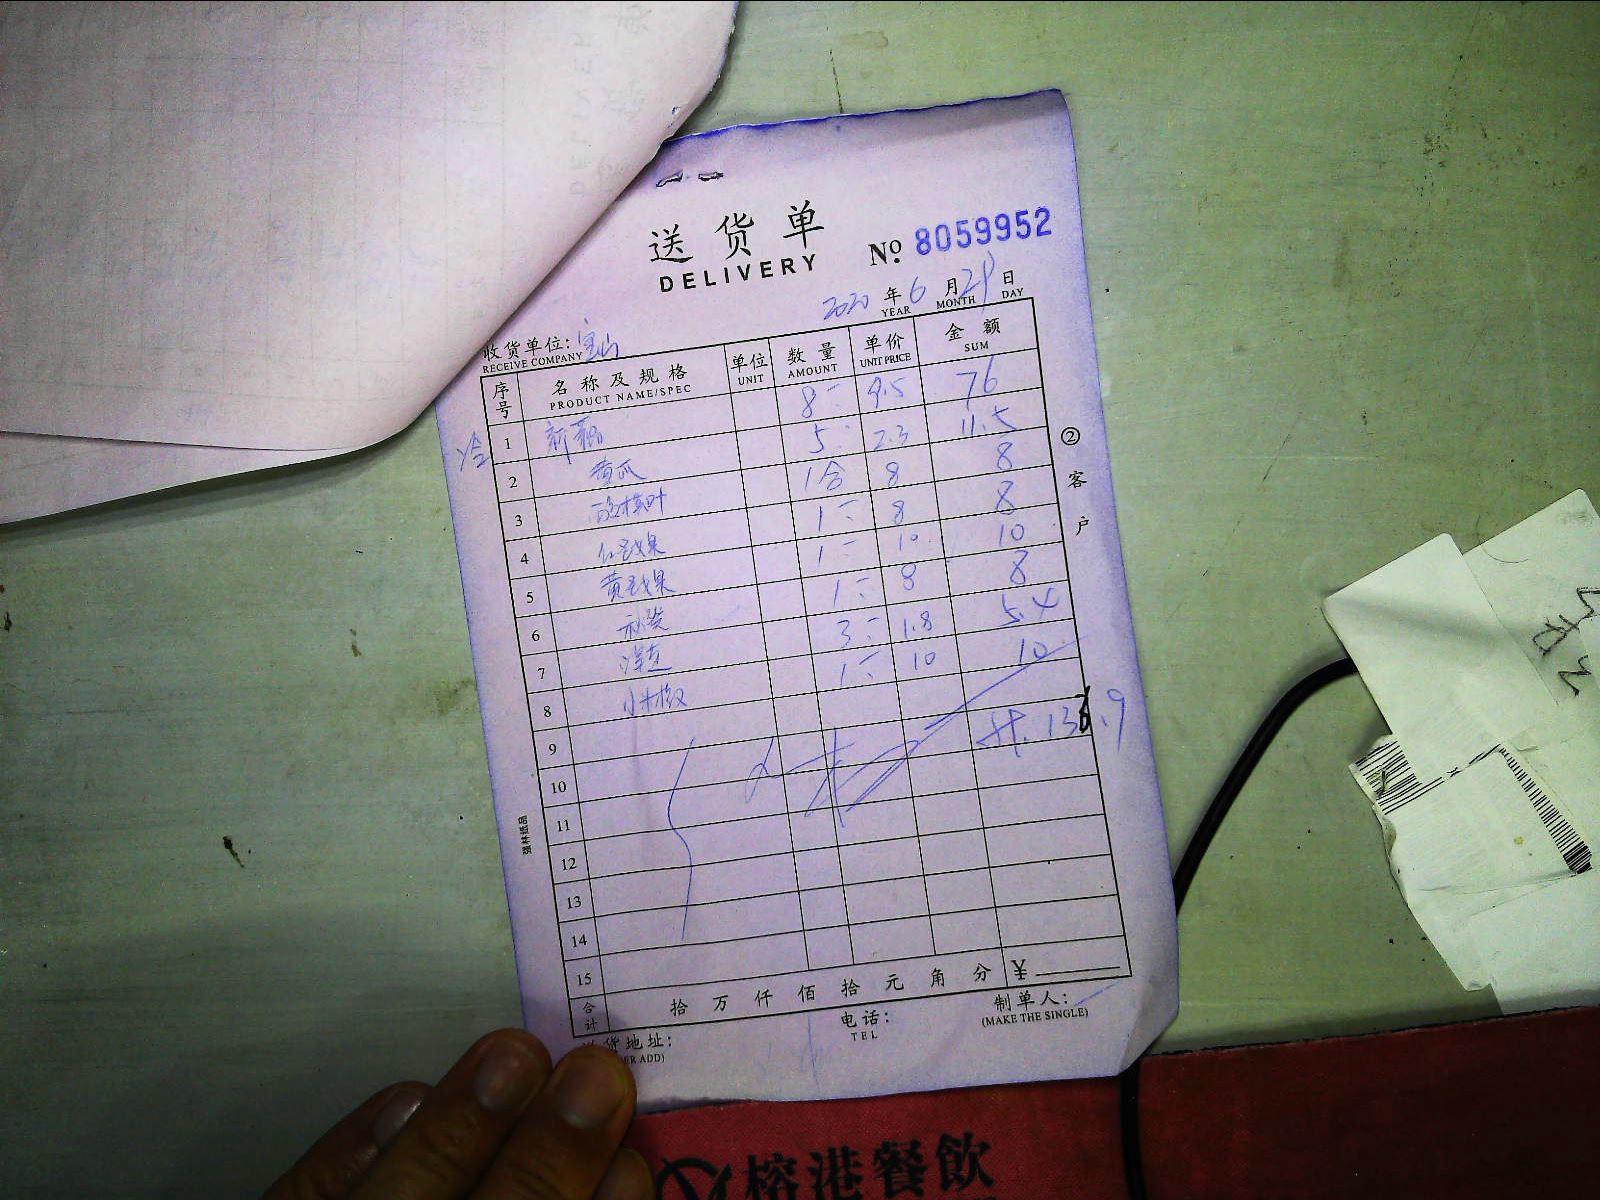 送货单
DELIVERY
No. 8059952
2020 年 6 月 29 日
YEAR MONTH DAY
收货单位: 宝山
RECEIVE COMPANY
序号 名称及规格 单位 数量 单价 金额
PRODUCT NAME/SPEC UNIT AMOUNT UNIT PRICE SUM
冷
1 8 9.5 76
2 黄瓜 5 2.3 11.5
3 1合 8 8
4 1 8 8
5 1 10 10
6 秋葵 1 8 8
7 3 1.8 5.4
8 小米椒 1 10 10
9 共. 136.9
10
11
12
13
14
15
合计 拾 万 仟 佰 拾 元 角 分 ¥
货地址: 电话: 制单人:
ER ADD) TEL (MAKE THE SINGLE)
② 客户
强林纸品
榕港餐飲